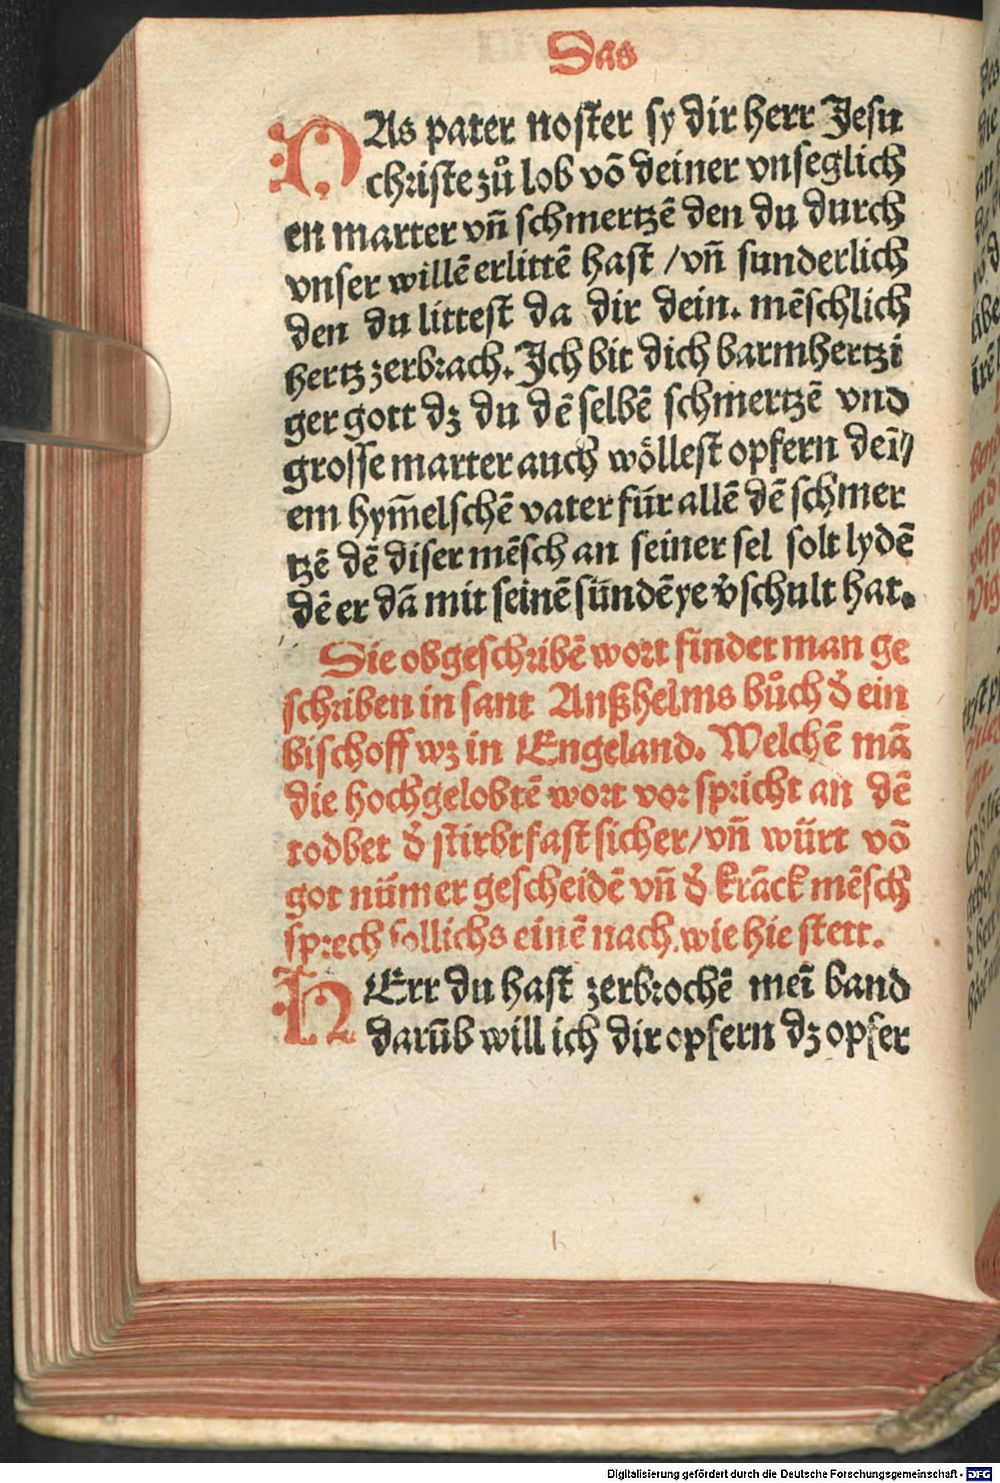 Das
DAs pater noster sy dir herr Jesu
christe zů lob võ deiner vnseglich
en marter vñ schmertzẽ den du durch
vnser willẽ erlittẽ hast /vñ sunderlich
den du littest da dir dein. mẽschlich
hertz zerbrach. Ich bit dich barmhertzi
ger gott dz du dẽ selbẽ schmertzẽ vnd
grosse marter auch wöllest opfern deĩ//
em hym̃elschẽ vater für allẽ dẽ schmer
tzẽ dẽ diser mẽsch an seiner sel solt lydẽ
dẽ er dã mit seinẽ sündẽ ye v̄schult hat.
Die obgeschribẽ wort findet man ge
schriben in sant Anßhelms bůch d̄ ein
bischoff wz in Engeland. Welchẽ mã
die hochgelobtẽ wort vor spricht an dẽ
todbet d̄ stirbt fast sicher/vñ würt võ
got nümer gescheidẽ vñ d̄ krãck mẽsch
sprech sollichs einẽ nach.wie hie stett.
HErr du hast zerbrochẽ meĩ band
darũb will ich dir opfern dz opfer
Digitalisierung gefördert durch die Deutsche Forschungsgemeinschaft - DFG